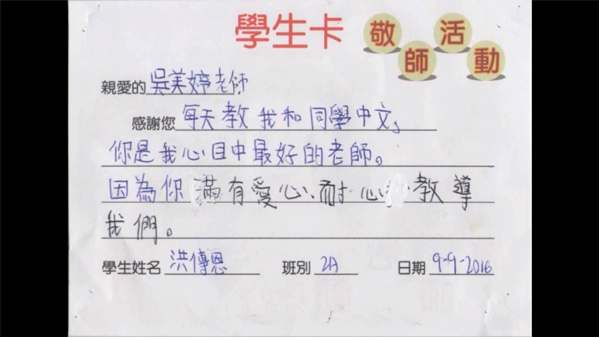 學生卡 敬師活動
親愛的吳美婷老師
感謝您 每天教我和同學中文,
你是我心目中最好的老師。
因為你滿有愛心、耐心教導
我們。
學生姓名 洪傳恩 班別 2A 日期 9-9-2016